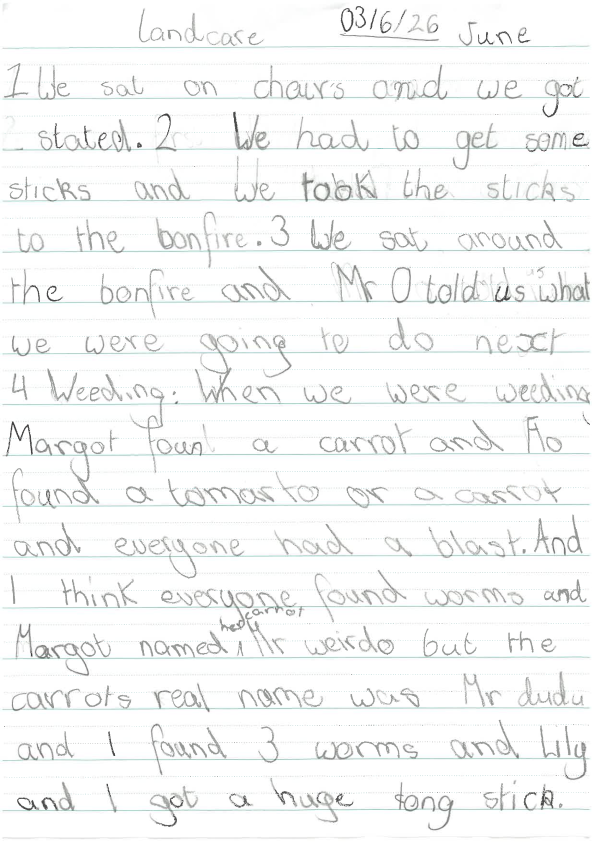 Landcare 03/6/26 June
1 We sat on chairs and we got
stated. 2 We had to get some
sticks and We took the sticks
to the bonfire. 3 We sat around
the bonfire and Mr O told us what
we were going to do next
4 Weeding: When we were weeding
Margot foun a carrot and Flo
found a tomarto or a carrot
and everyone had a blast. And
I think everyone found worms and
Margot named her carrot Mr weirdo but the
carrots real name was Mr dudu
and I found 3 worms and Lily
and I got a huge long stick.